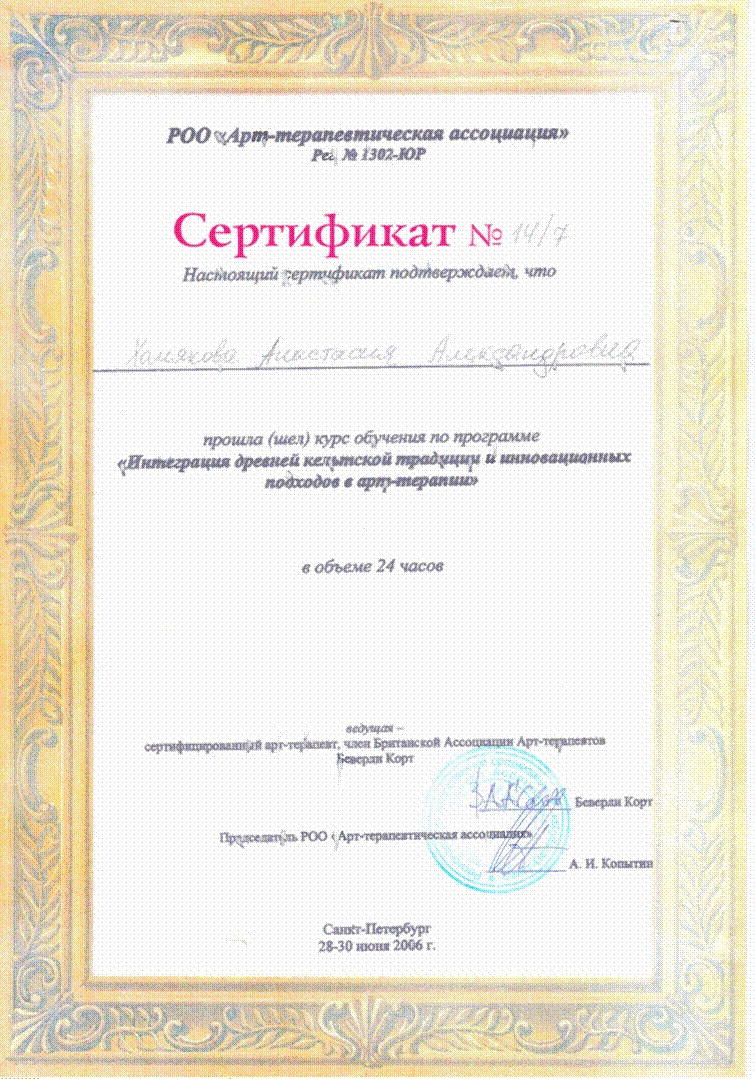 РОО «Арт-терапевтическая ассоциация»
Рег. № 1302-ЮР
Сертификат № 14/7
Настоящий сертификат подтверждает, что
Анастасия Александровна
прошла (шел) курс обучения по программе
«Интеграция древней кельтской традиции и инновационных
подходов в арт-терапии»
в объеме 24 часов
ведущая –
сертифицированный арт-терапевт, член Британской Ассоциации Арт-терапевтов
Беверли Корт
Беверли Корт
Председатель РОО «Арт-терапевтическая ассоциация»
А. И. Копытин
Санкт-Петербург
28-30 июня 2006 г.